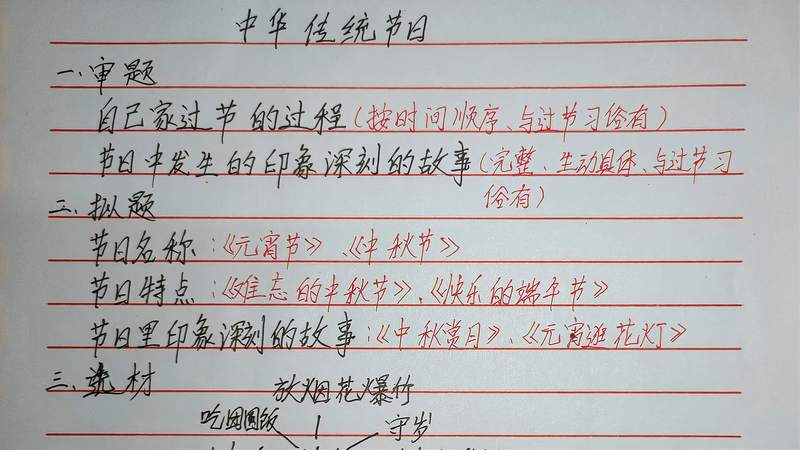 中华传统节日
一、审题
自己家过节的过程(按时间顺序、与过节习俗有)
节日中发生的印象深刻的故事(完整、生动具体、与过节习
俗有)
二、拟题
节日名称:《元宵节》、《中秋节》
节日特点:《难忘的中秋节》、《快乐的端午节》
节日里印象深刻的故事:《中秋赏月》、《元宵逛花灯》
三、选材
放烟花爆竹
吃团圆饭 守岁